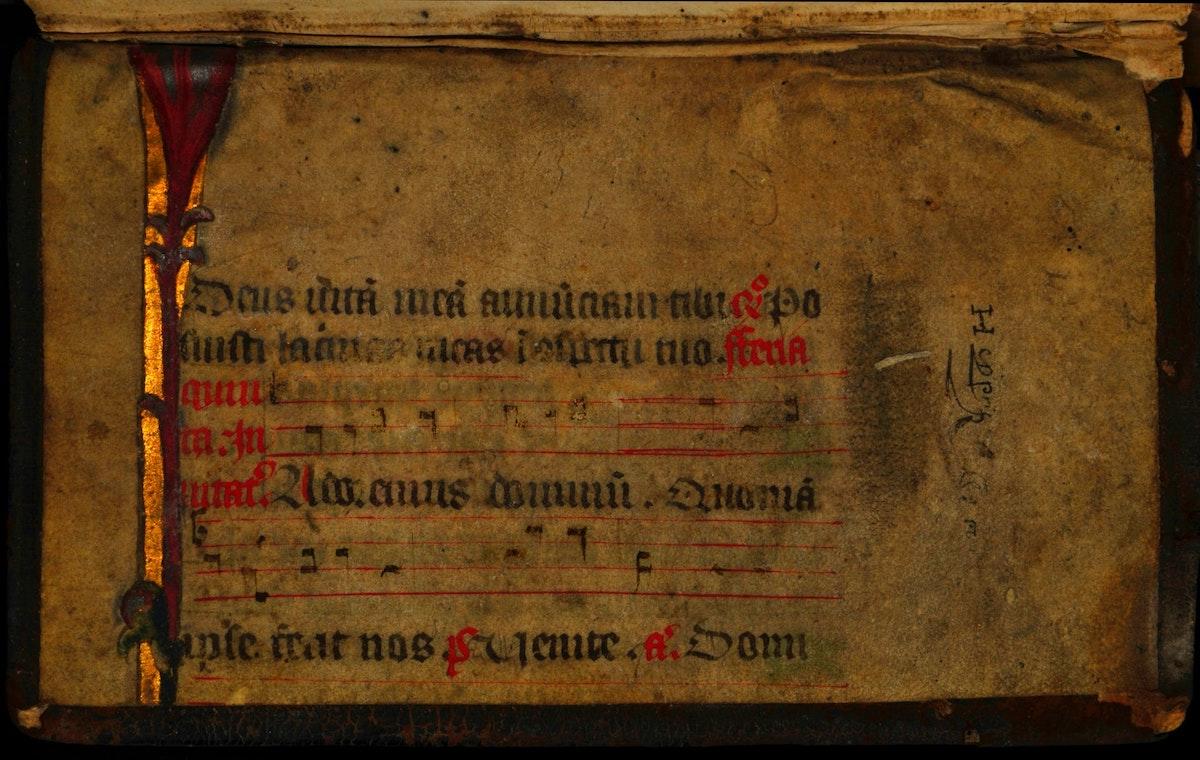 Deus uitā meā annūciaui tibi ℟ Po
suisti lacrimas meas ī ɔspectu tuo. fferia
quin
ta. In
uitat. Adoremus dominū. Quoniā
ipse fecit nos ps Uenite. a. Domi